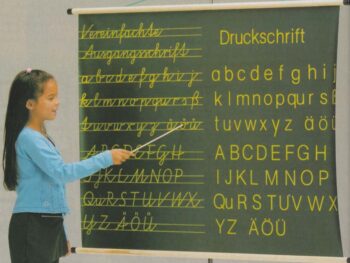 Vereinfachte
Ausgangsschrift
a b c d e f g h i j
k l m n o p q u r s ß
t u v w x y z ä ö ü
A B C D E F G H
I J K L M N O P
Qu R S T U V W X
Y Z Ä Ö Ü
Druckschrift
a b c d e f g h i j
k l m n o p qu r s ß
t u v w x y z ä ö ü
A B C D E F G H
I J K L M N O P
Qu R S T U V W X
Y Z Ä Ö Ü